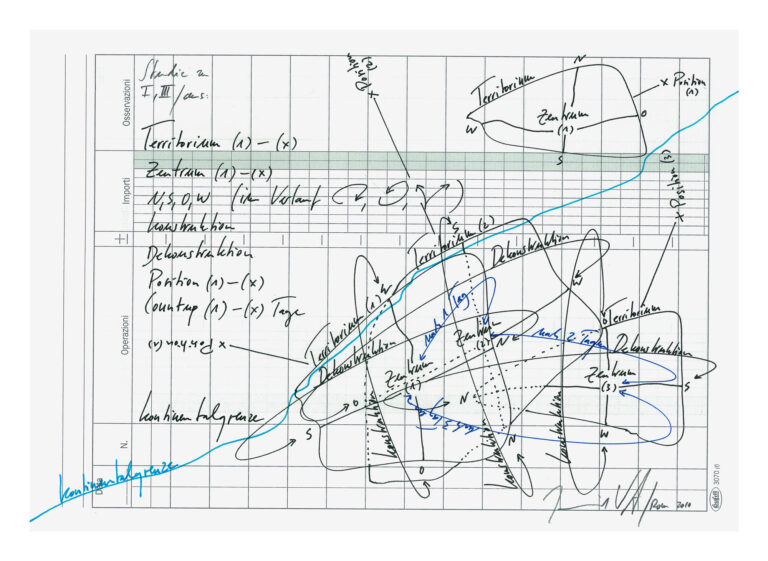 Studie zu
I, III / aus:
Territorium (1) – (x)
Zentrum (1) – (x)
N, S, O, W (im Verlauf , , , )
Konstruktion
Dekonstruktion
Position (1) – (x)
Countup (1) – (x) Tage
x Position (1)
Kontinentalgrenze
Kontinentalgrenze
Osservazioni
Importi
Operazioni
N.
Data
x Position (2)
N
Territorium
x Position
(1)
Zentrum
(1)
W
O
S
x Position (3)
S
Territorium (2)
Dekonstruktion
W
W
Territorium (1)
Dekonstruktion
nach 1 Tag
Zentrum
(2)
N
nach 2 Tagen
O
Territorium
Dekonstruktion
Zentrum
(3)
S
Zentrum
(1)
O
N
nach 3 Tagen
S
Konstruktion
Konstruktion
N
Konstruktion
W
O
/ Rom 2010
3070